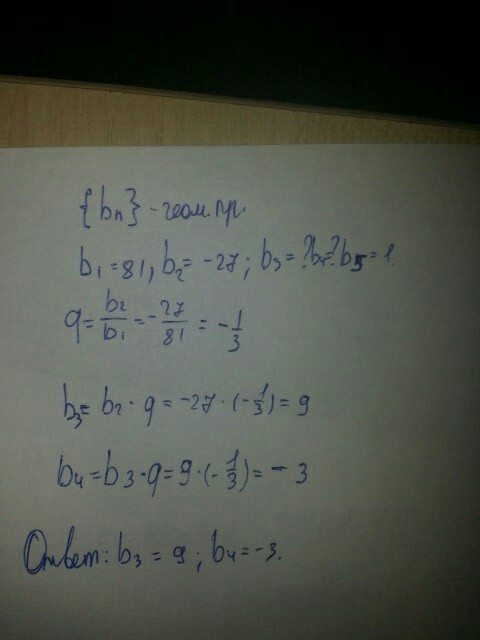 {bn} - геом. пр.
b₁ = 81, b₂ = -27; b₃ = ? b₄ = ? b₅ = 1.
q = b₂/b₁ = -27/81 = -1/3
b₃ = b₂ · q = -27 · (-1/3) = 9
b₄ = b₃ · q = 9 · (-1/3) = -3
Ответ: b₃ = 9; b₄ = -3.